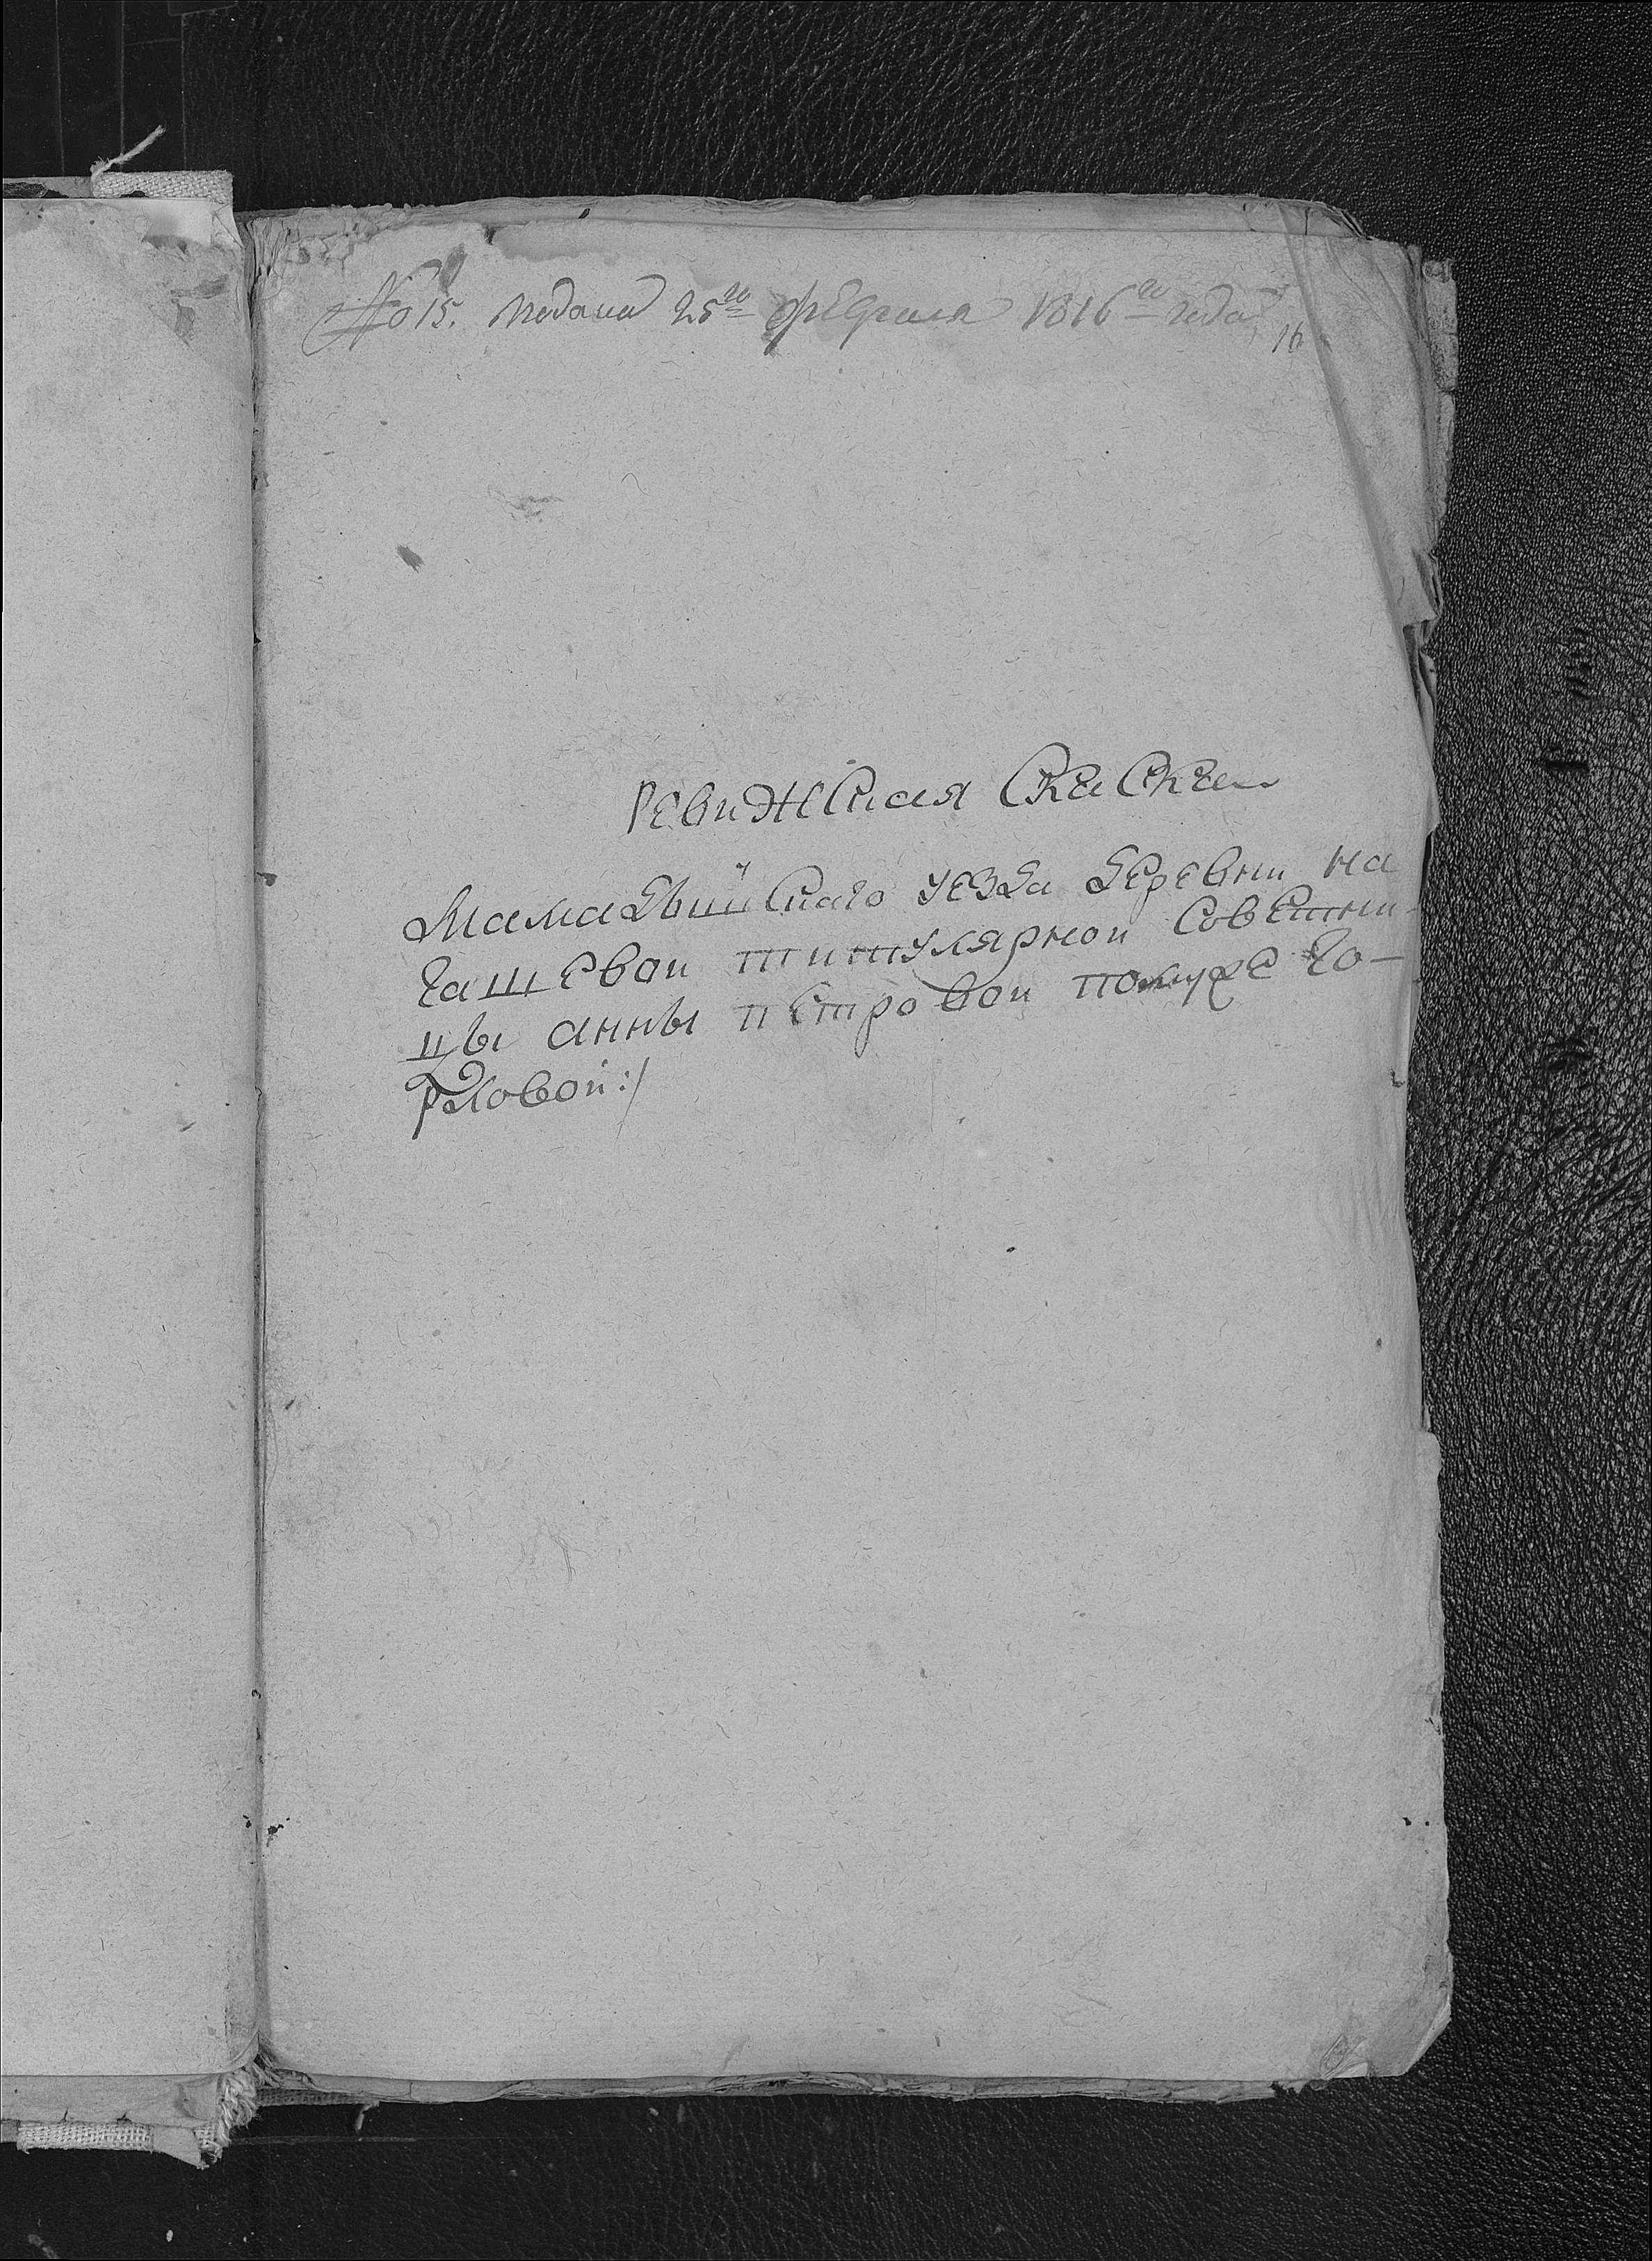 № 15. подана 25го февраля 1816го года
16
Ревижская Скаска
Мамадышскаго уезда деревни На
гашевои титулярнои Советни
цы анны петровои по муже Го-
рловой:/